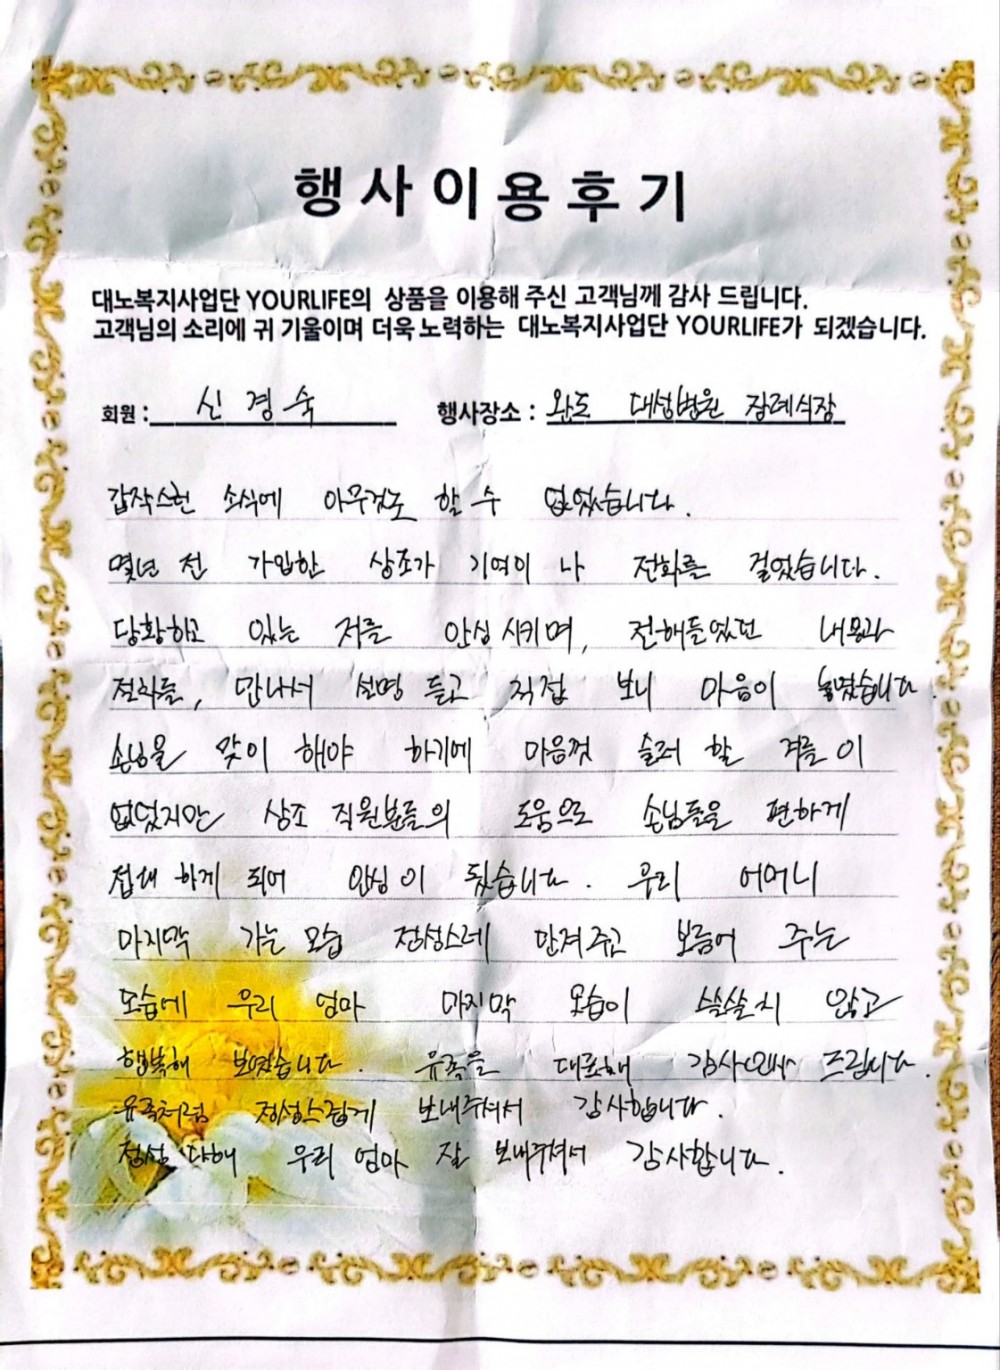 행사이용후기
대노복지사업단 YOURLIFE의 상품을 이용해 주신 고객님께 감사 드립니다.
고객님의 소리에 귀 기울이며 더욱 노력하는 대노복지사업단 YOURLIFE가 되겠습니다.
회원 : 신경숙 행사장소 : 완도 대성병원 장례식장
갑작스런 소식에 아무것도 할 수 없었습니다.
몇년 전 가입한 상조가 기억이 나 전화를 걸었습니다.
당황하고 있는 저를 안심 시키며, 전해들었던 내용과
절차를, 만나서 설명 듣고 직접 보니 마음이 놓였습니다.
손님을 맞이 해야 하기에 마음껏 슬퍼 할 겨를 이
없었지만 상조 직원분들의 도움으로 손님들을 편하게
접대 하게 되어 안심 이 됬습니다. 우리 어머니
마지막 가는 모습 정성스레 만져주고 보듬어 주는
모습에 우리 엄마 마지막 모습이 쓸쓸치 않고
행복해 보였습니다. 유족을 대표해 감사인사 드립니다.
유족처럼 정성스럽게 보내주셔서 감사합니다.
정성 다해 우리 엄마 잘 보내주셔서 감사합니다.